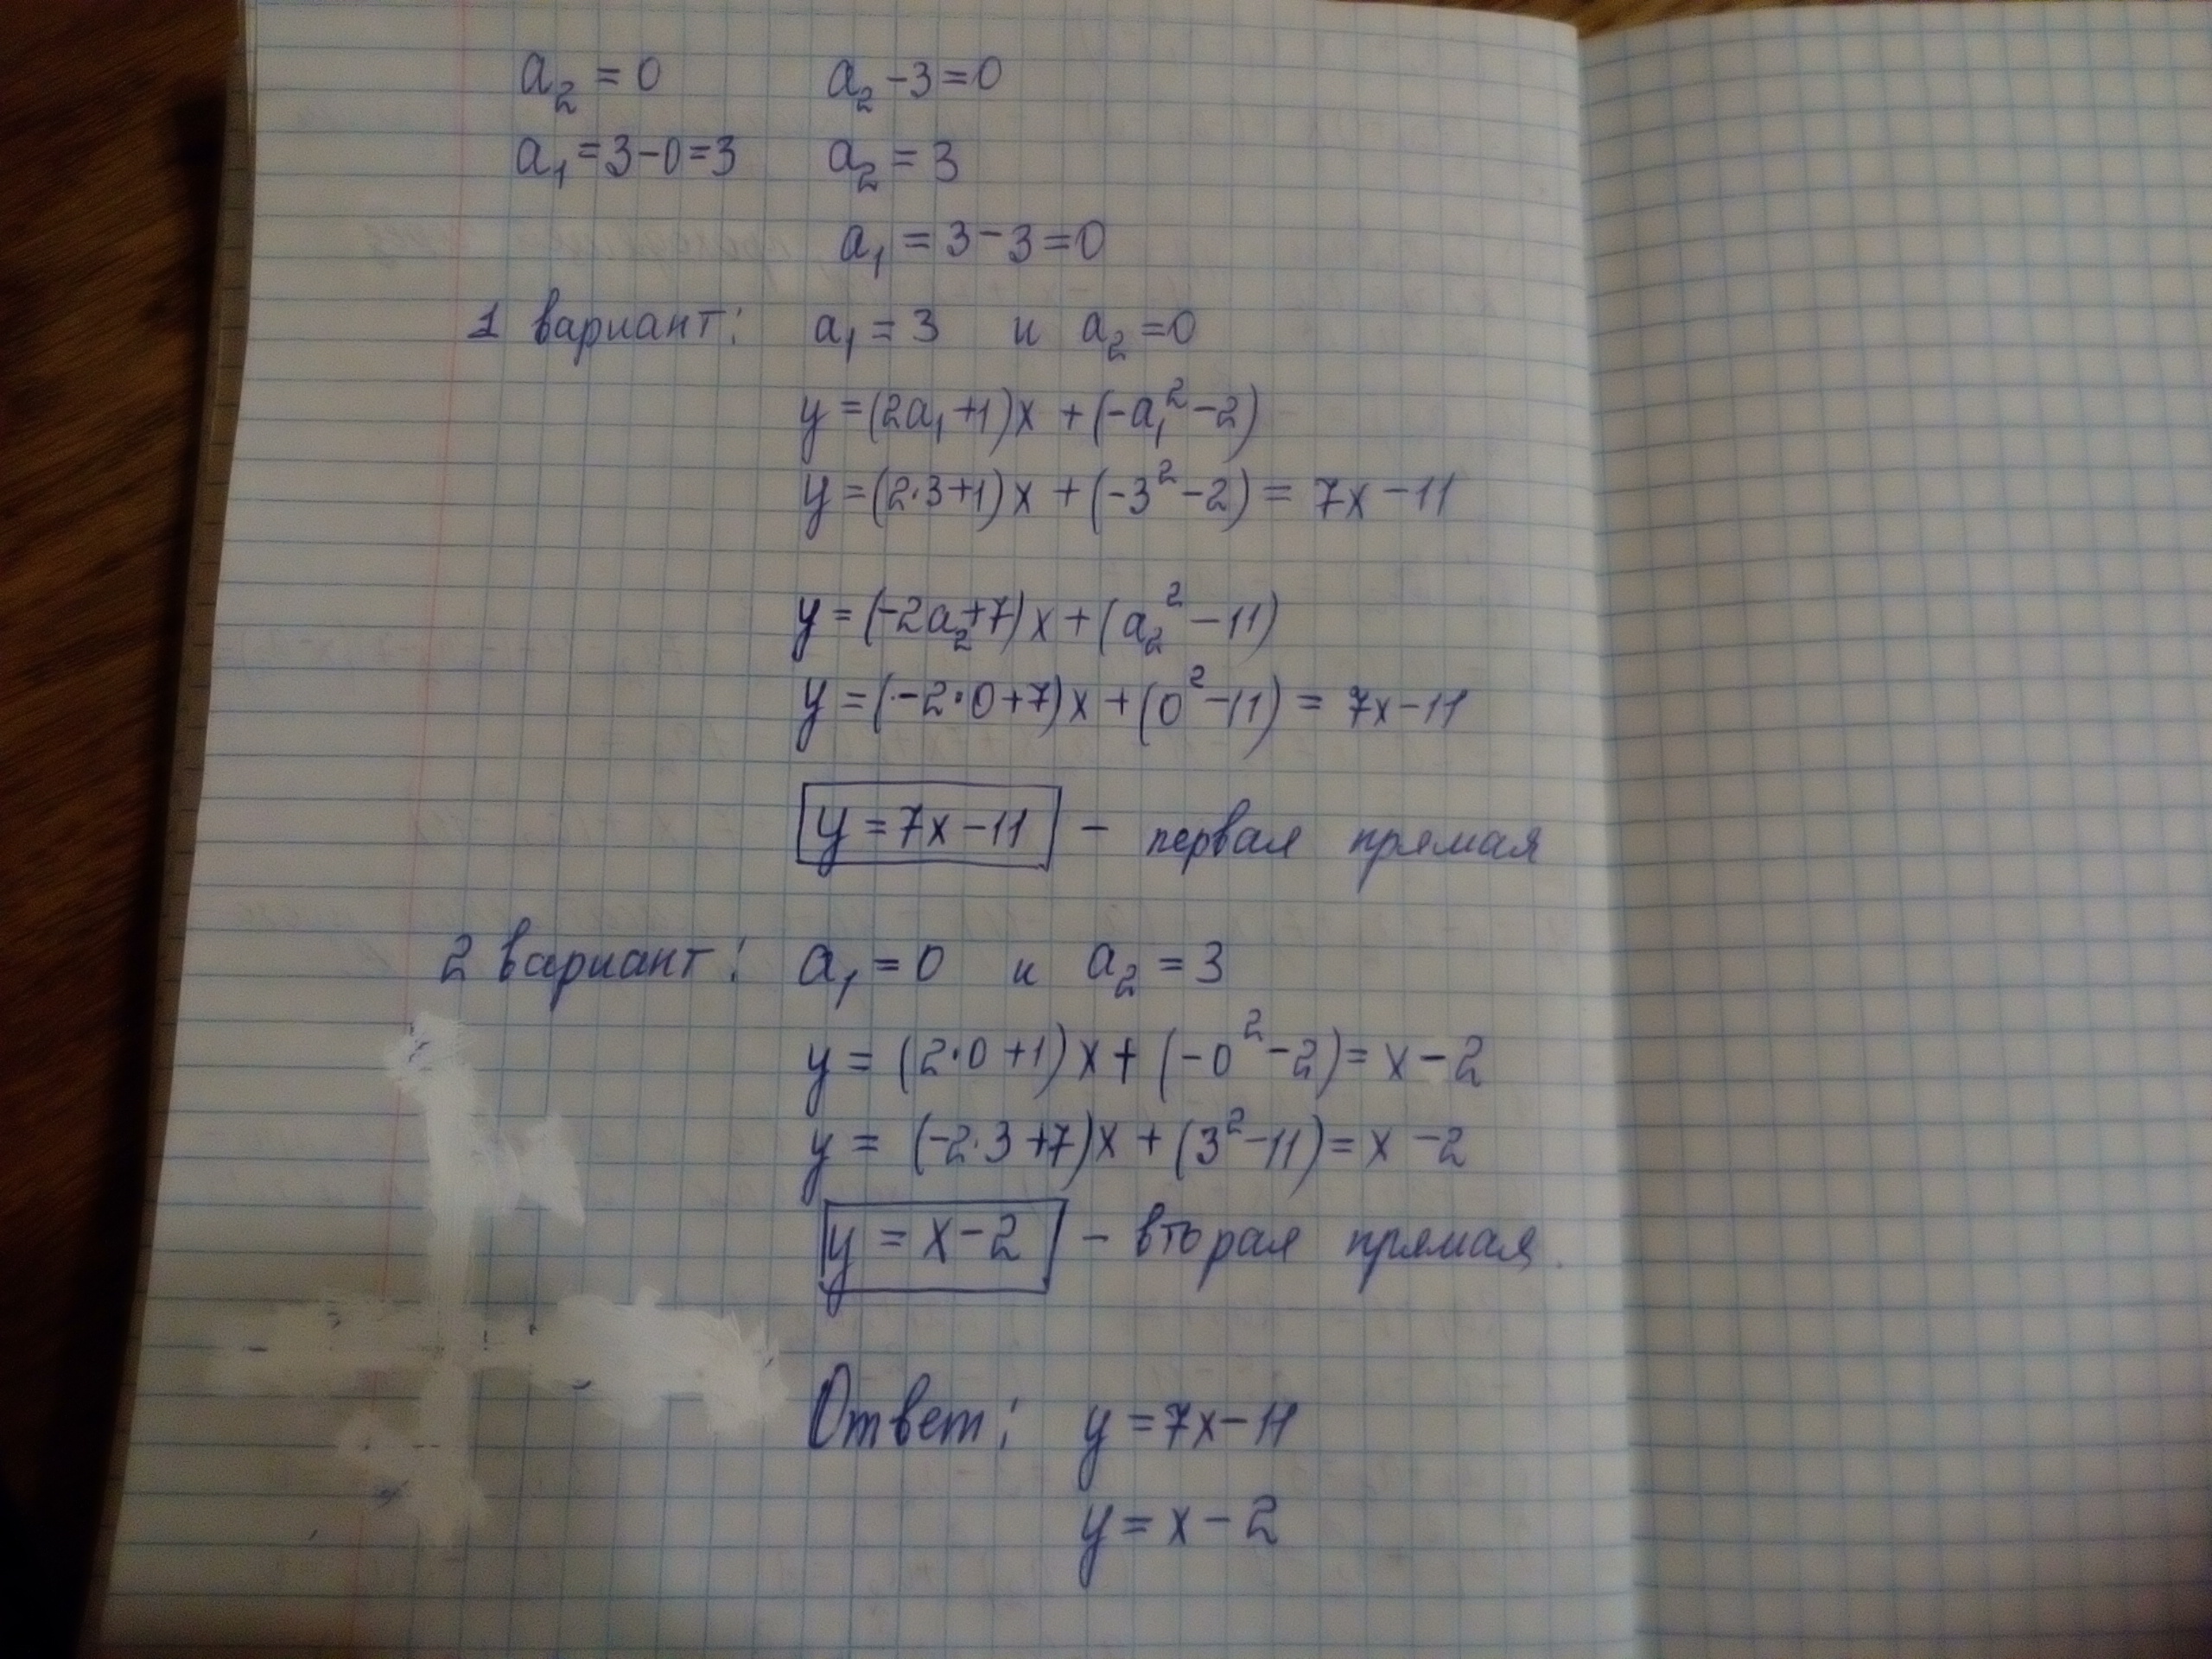 a₂ = 0 a₂ - 3 = 0
a₁ = 3 - 0 = 3 a₂ = 3
a₁ = 3 - 3 = 0
1 вариант: a₁ = 3 и a₂ = 0
y = (2a₁ + 1)x + (-a₁² - 2)
y = (2·3 + 1)x + (-3² - 2) = 7x - 11
y = (-2a₂ + 7)x + (a₂² - 11)
y = (-2·0 + 7)x + (0² - 11) = 7x - 11
y = 7x - 11 - первая прямая
2 вариант: a₁ = 0 и a₂ = 3
y = (2·0 + 1)x + (-0² - 2) = x - 2
y = (-2·3 + 7)x + (3² - 11) = x - 2
y = x - 2 - вторая прямая.
Ответ: y = 7x - 11
y = x - 2